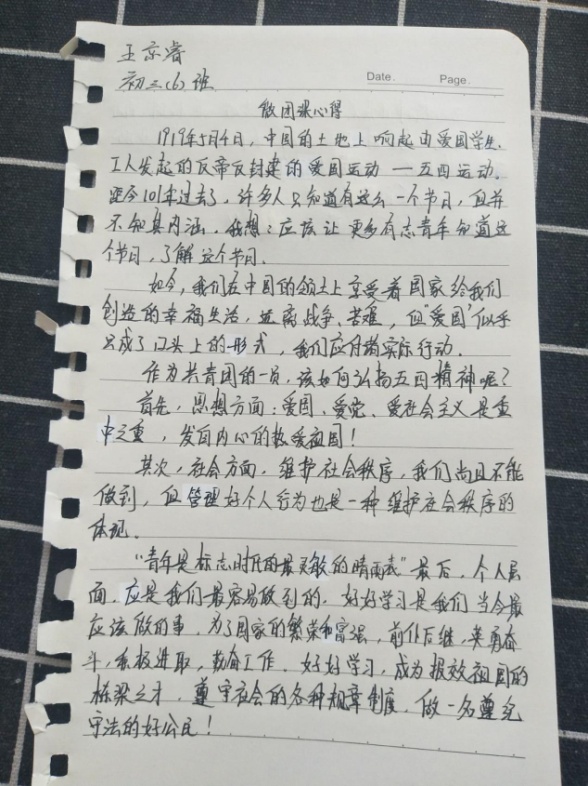 王京睿
初三(6)班
Date. Page.
微团课心得
1919年5月4日，中国的土地上响起由爱国学生、
工人发起的反帝反封建的爱国运动——五四运动。
至今101年过去了，许多人只知道有这么一个节日，但并
不知其内涵。我想：应该让更多有志青年知道这
个节日，了解这个节日。
如今，我们在中国的领土上享受着国家给我们
创造的幸福生活，远离战争、苦难，但“爱国”似乎
只成了口头上的形式，我们应付诸实际行动。
作为共青团的一员，该如何弘扬五四精神呢？
首先，思想方面：爱国、爱党、爱社会主义是重
中之重，发自内心的热爱祖国！
其次，社会方面，维护社会秩序，我们尚且不能
做到，但管理好个人行为也是一种维护社会秩序的
体现。
“青年是标志时代的最灵敏的晴雨表”最后，个人层
面，应是我们最容易做到的，好好学习是我们当今最
应该做的事，为了国家的繁荣和富强，前仆后继，英勇奋
斗，积极进取，勤奋工作，好好学习，成为报效祖国的
栋梁之才，遵守社会的各种规章制度，做一名遵纪
守法的好公民！